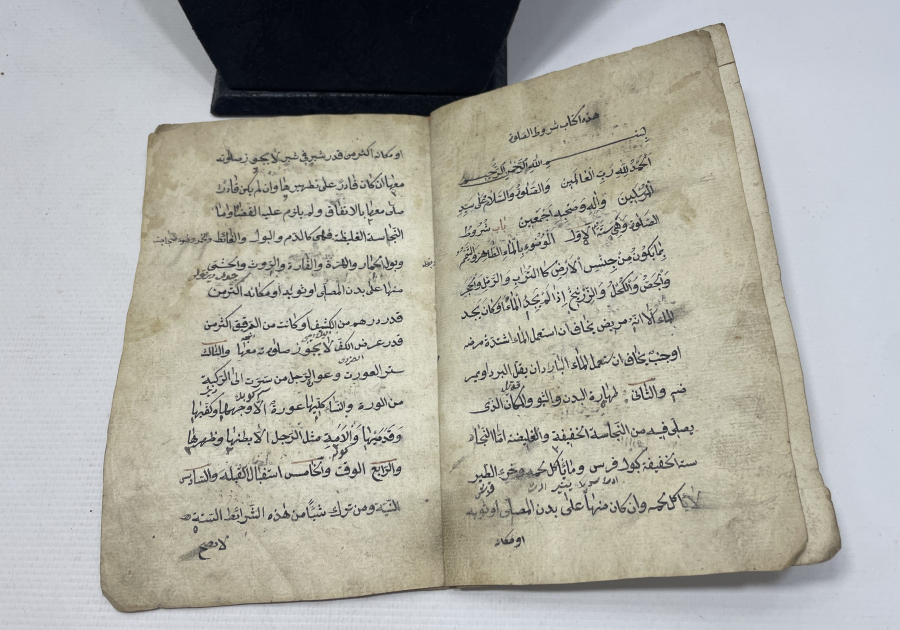 هذه الكتاب شروط الصلوة
بسم الله الرحمن الرحيم
الحمد لله رب العالمين والصلوة والسلام على سيد
المرسلين وآله وصحبه اجمعين باب شروط
الصلوة وهى ستة الاول الوضوء بالماء الطاهر والتيمم
بما يكون من جنس الارض كالتراب والرمل والحجر
والجص والكحل والزرنيخ اذا لم يجد الماء او كان يجد
الماء الا انه مريض يخاف ان استعمل الماء اشتد مرضه
او جنب يخاف ان استعمل الماء البارد ان يقتل البرد او يمر
ضه والثانى طهارة البدن والثوب والمكان الذى
يصلى فيه من النجاسة الخفيفة والغليظة اما النجا
سة الخفيفة كبول فرس وما يأكل لحمه وخرء الطير
لا يأكل لحمه وان كان منها على بدن المصلى او ثوبه
او مكانه
او مكانه اكثر من قدر شبر فى شبر لا يجوز صلوته
معها ان كان قادرا على تطهيرها وان لم يكن قادرا
صلى معها بالاتفاق ولم يلزم عليه القضاء واما
النجاسة الغليظة فهى كالدم والبول والغائط
وبول الحمار والهرة والفارة والروث والخثى
منها على بدن المصلى او ثوبه او مكانه اكثر من
قدر درهم من الكثيف او كانت من الرقيق اكثر من
قدر عرض الكف لا يجوز صلوته معها والثالث
ستر العورت وعورة الرجل من سرت الى الركبة
كلها عورة الا وجهها وكفيها
وقدميها والامة مثل الرجل الا بطنها وظهرها
والرابع الوقت والخامس استقبال القبلة والسادس
النية ومن ترك شيئا من هذه الشرائط الستة
لا تصح